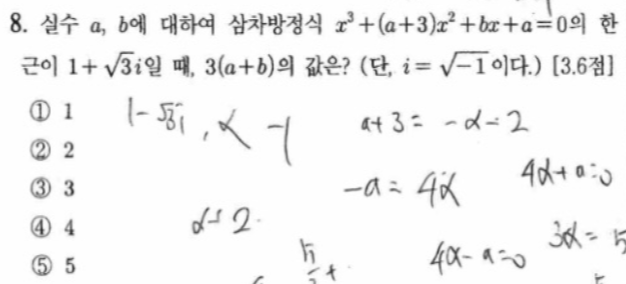 8. 실수 a, b에 대하여 삼차방정식 x³+(a+3)x²+bx+a=0의 한
근이 1+√3i일 때, 3(a+b)의 값은? (단, i=√-1이다.) [3.6점]
① 1
② 2
③ 3
④ 4
⑤ 5
1-√3i, α
a+3 = -α-2
-a = 4α
4α+a=0
4α-a=0
3α = 5